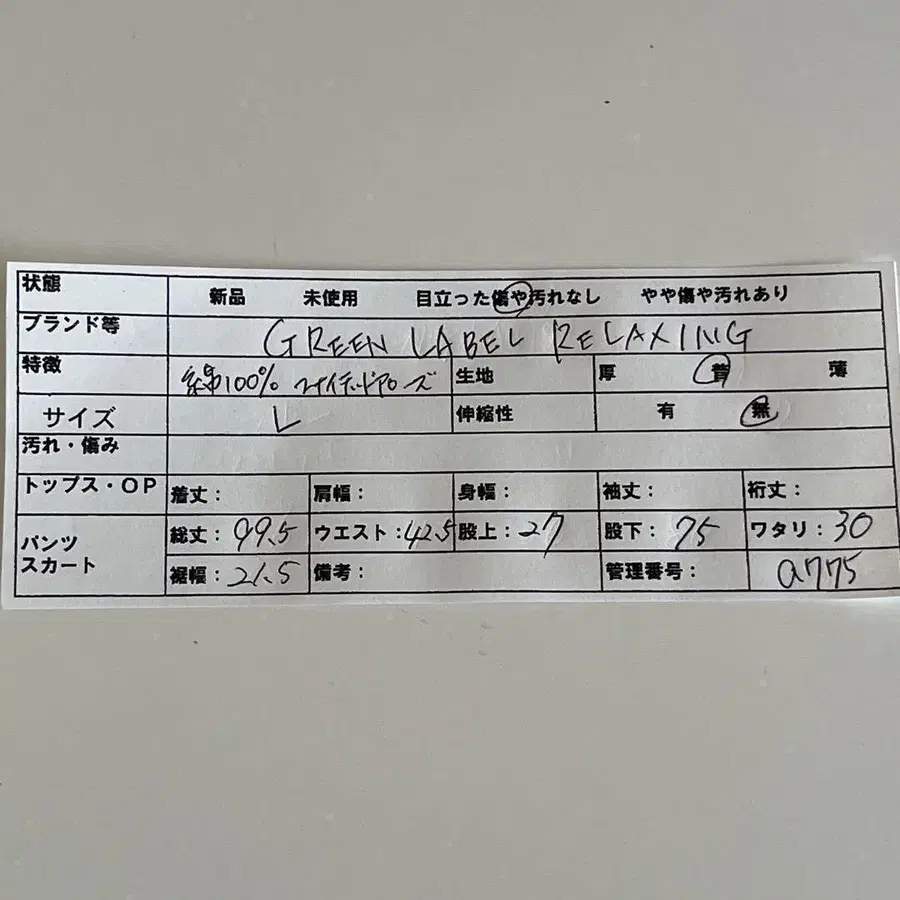 状態 新品 未使用 目立った傷や汚れなし やや傷や汚れあり
ブランド等 GREEN LABEL RELAXING
特徴 綿100% ユナイテッドアローズ 生地 厚 普 薄
サイズ L 伸縮性 有 無
汚れ・傷み
トップス・OP 着丈: 肩幅: 身幅: 袖丈: 裄丈:
パンツ スカート 総丈: 99.5 ウエスト: 42.5 股上: 27 股下: 75 ワタリ: 30
裾幅: 21.5 備考: 管理番号: a775